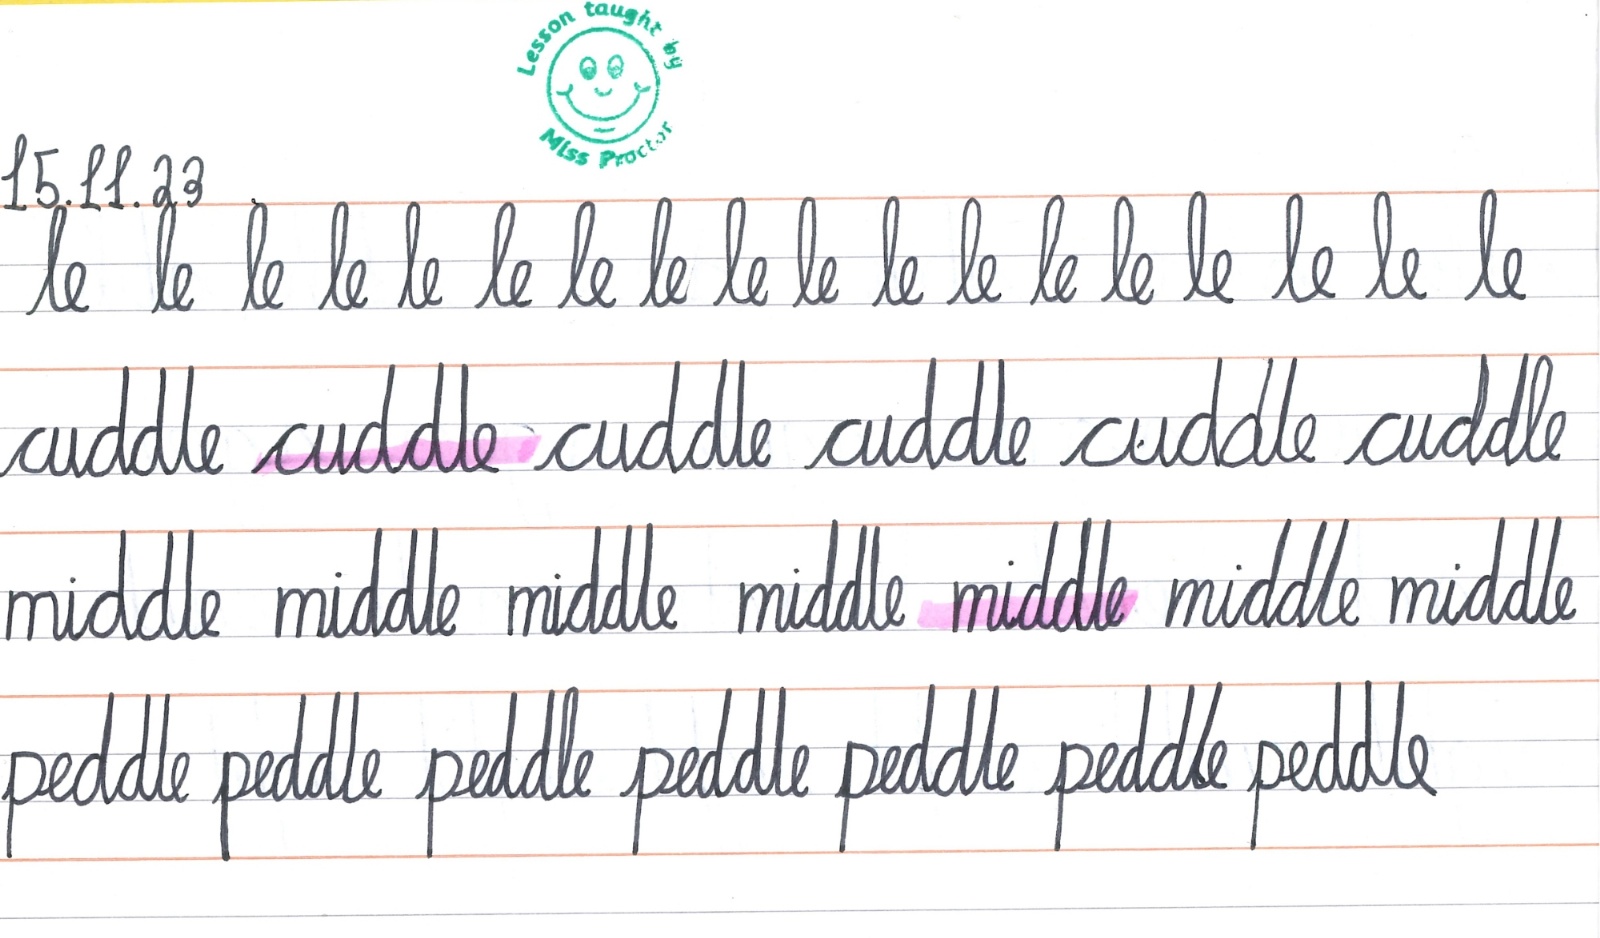 Lesson taught by
Miss Proctor
15.11.23
le le le le le le le le le le le le le le le le le le
cuddle cuddle cuddle cuddle cuddle cuddle
middle middle middle middle middle middle middle
peddle peddle peddle peddle peddle peddle peddle